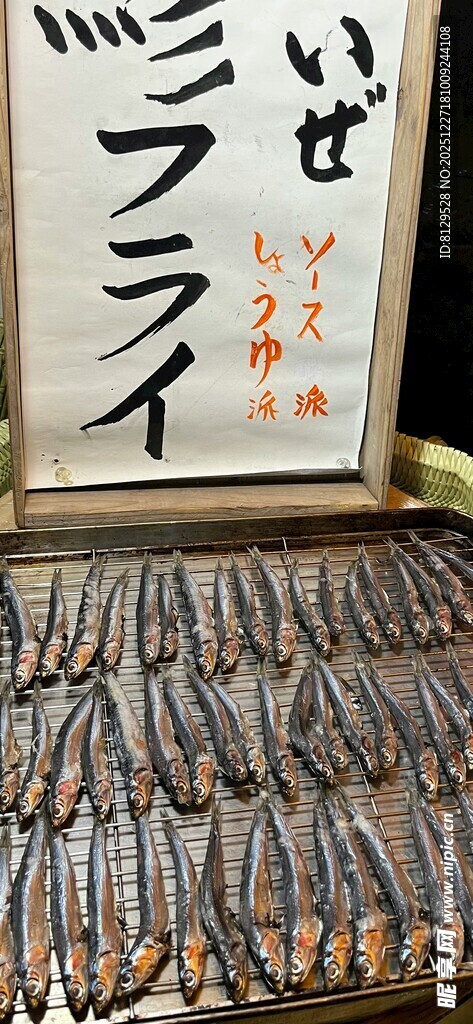 いぜ
ソース派
しょうゆ派
ミフライ
ID:8129528 NO:20251227181009244108
昵享网 www.nipic.cn